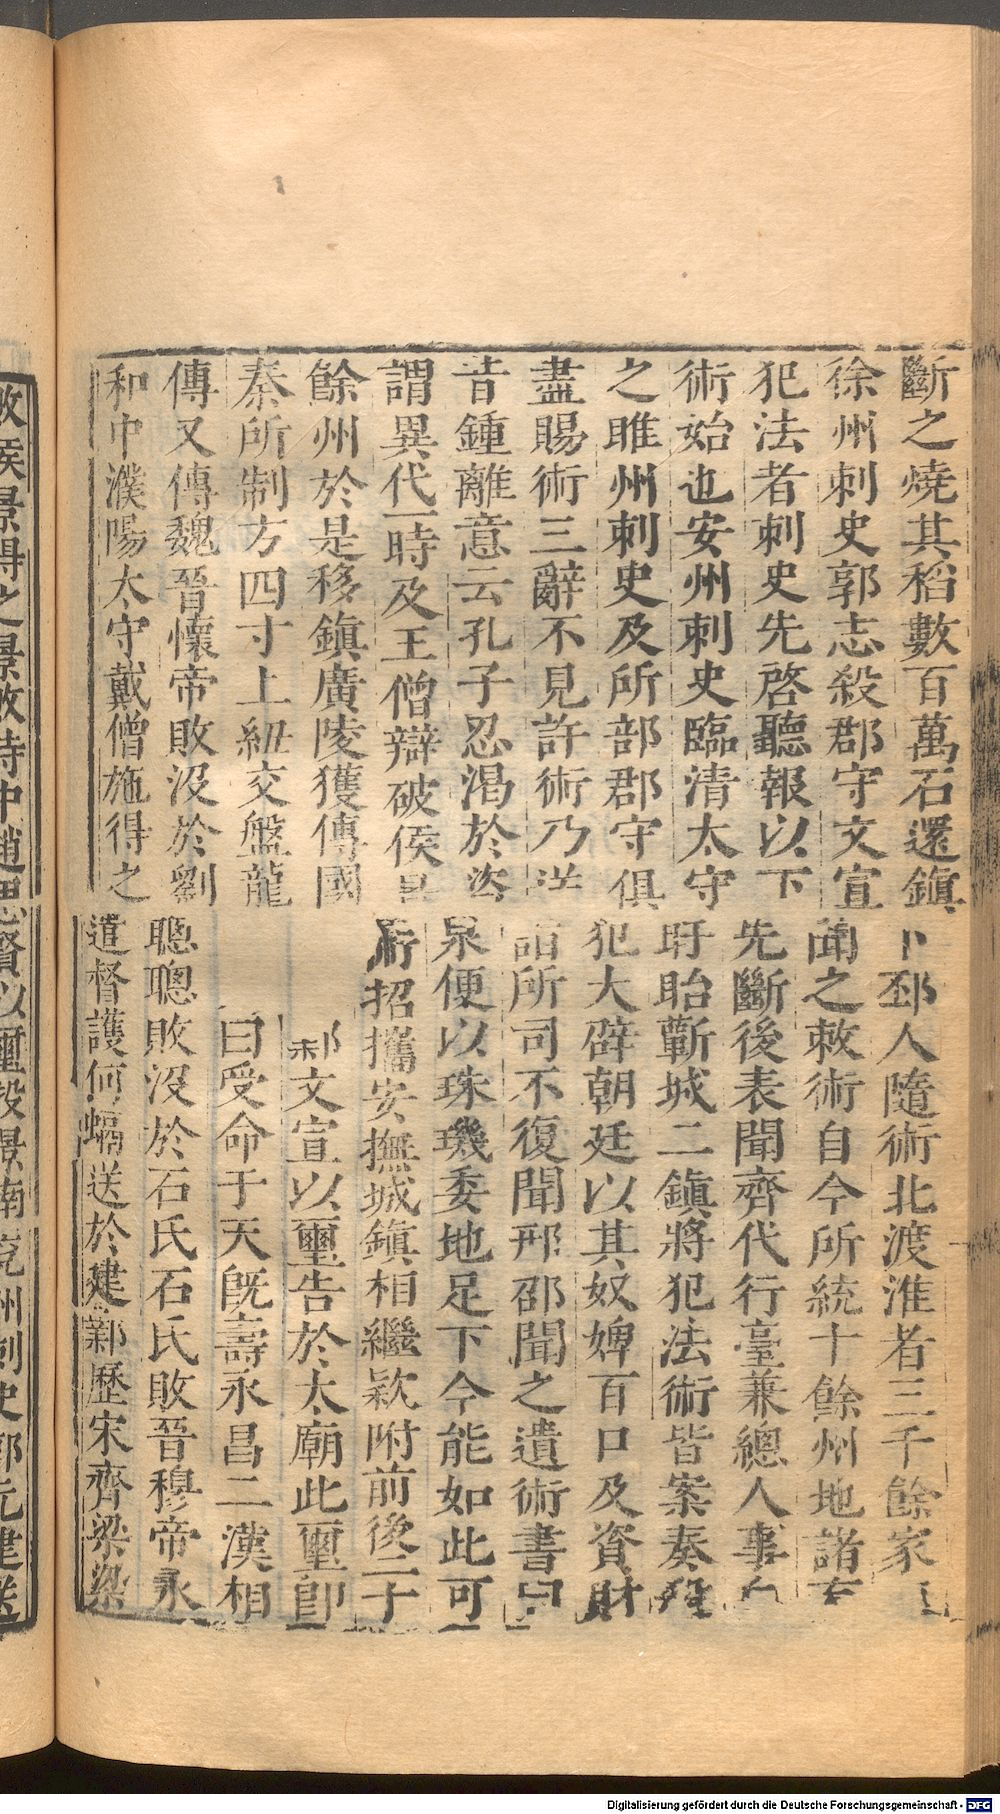 斷之燒其稻數百萬石還鎮下邳人隨術北渡淮者三千餘家
徐州刺史郭志殺郡守文宣聞之敕術自今所統十餘州地諸有
犯法者刺史先啓聽報以下先斷後表聞齊代行臺兼總人事自
術始也安州刺史臨清太守盱眙蘄城二鎮將犯法術皆案奏殺
之睢州刺史及所部郡守俱犯大辟朝廷以其奴婢百口及資財
盡賜術三辭不見許術乃送詣所司不復聞邢邵聞之遺術書曰
昔鍾離意云孔子忍渴於盜泉便以珠璣委地足下今能如此可
謂異代一時及王僧辯破侯景術招攜安撫城鎮相繼款附前後二十
餘州於是移鎮廣陵獲傳國 文宣以璽告於太廟此璽即
秦所制方四寸上紐交盤龍 曰受命于天旣壽永昌二漢相
傳又傳魏晉懷帝敗沒於劉聰聰敗沒於石氏石氏敗晉穆帝永
和中濮陽太守戴僧施得之遣督護何 送於建鄴歷宋齊梁梁
敗侯景得之景敗侍中趙思賢以璽投景南兗州刺史郭元建送
Digitalisierung gefördert durch die Deutsche Forschungsgemeinschaft - DFG